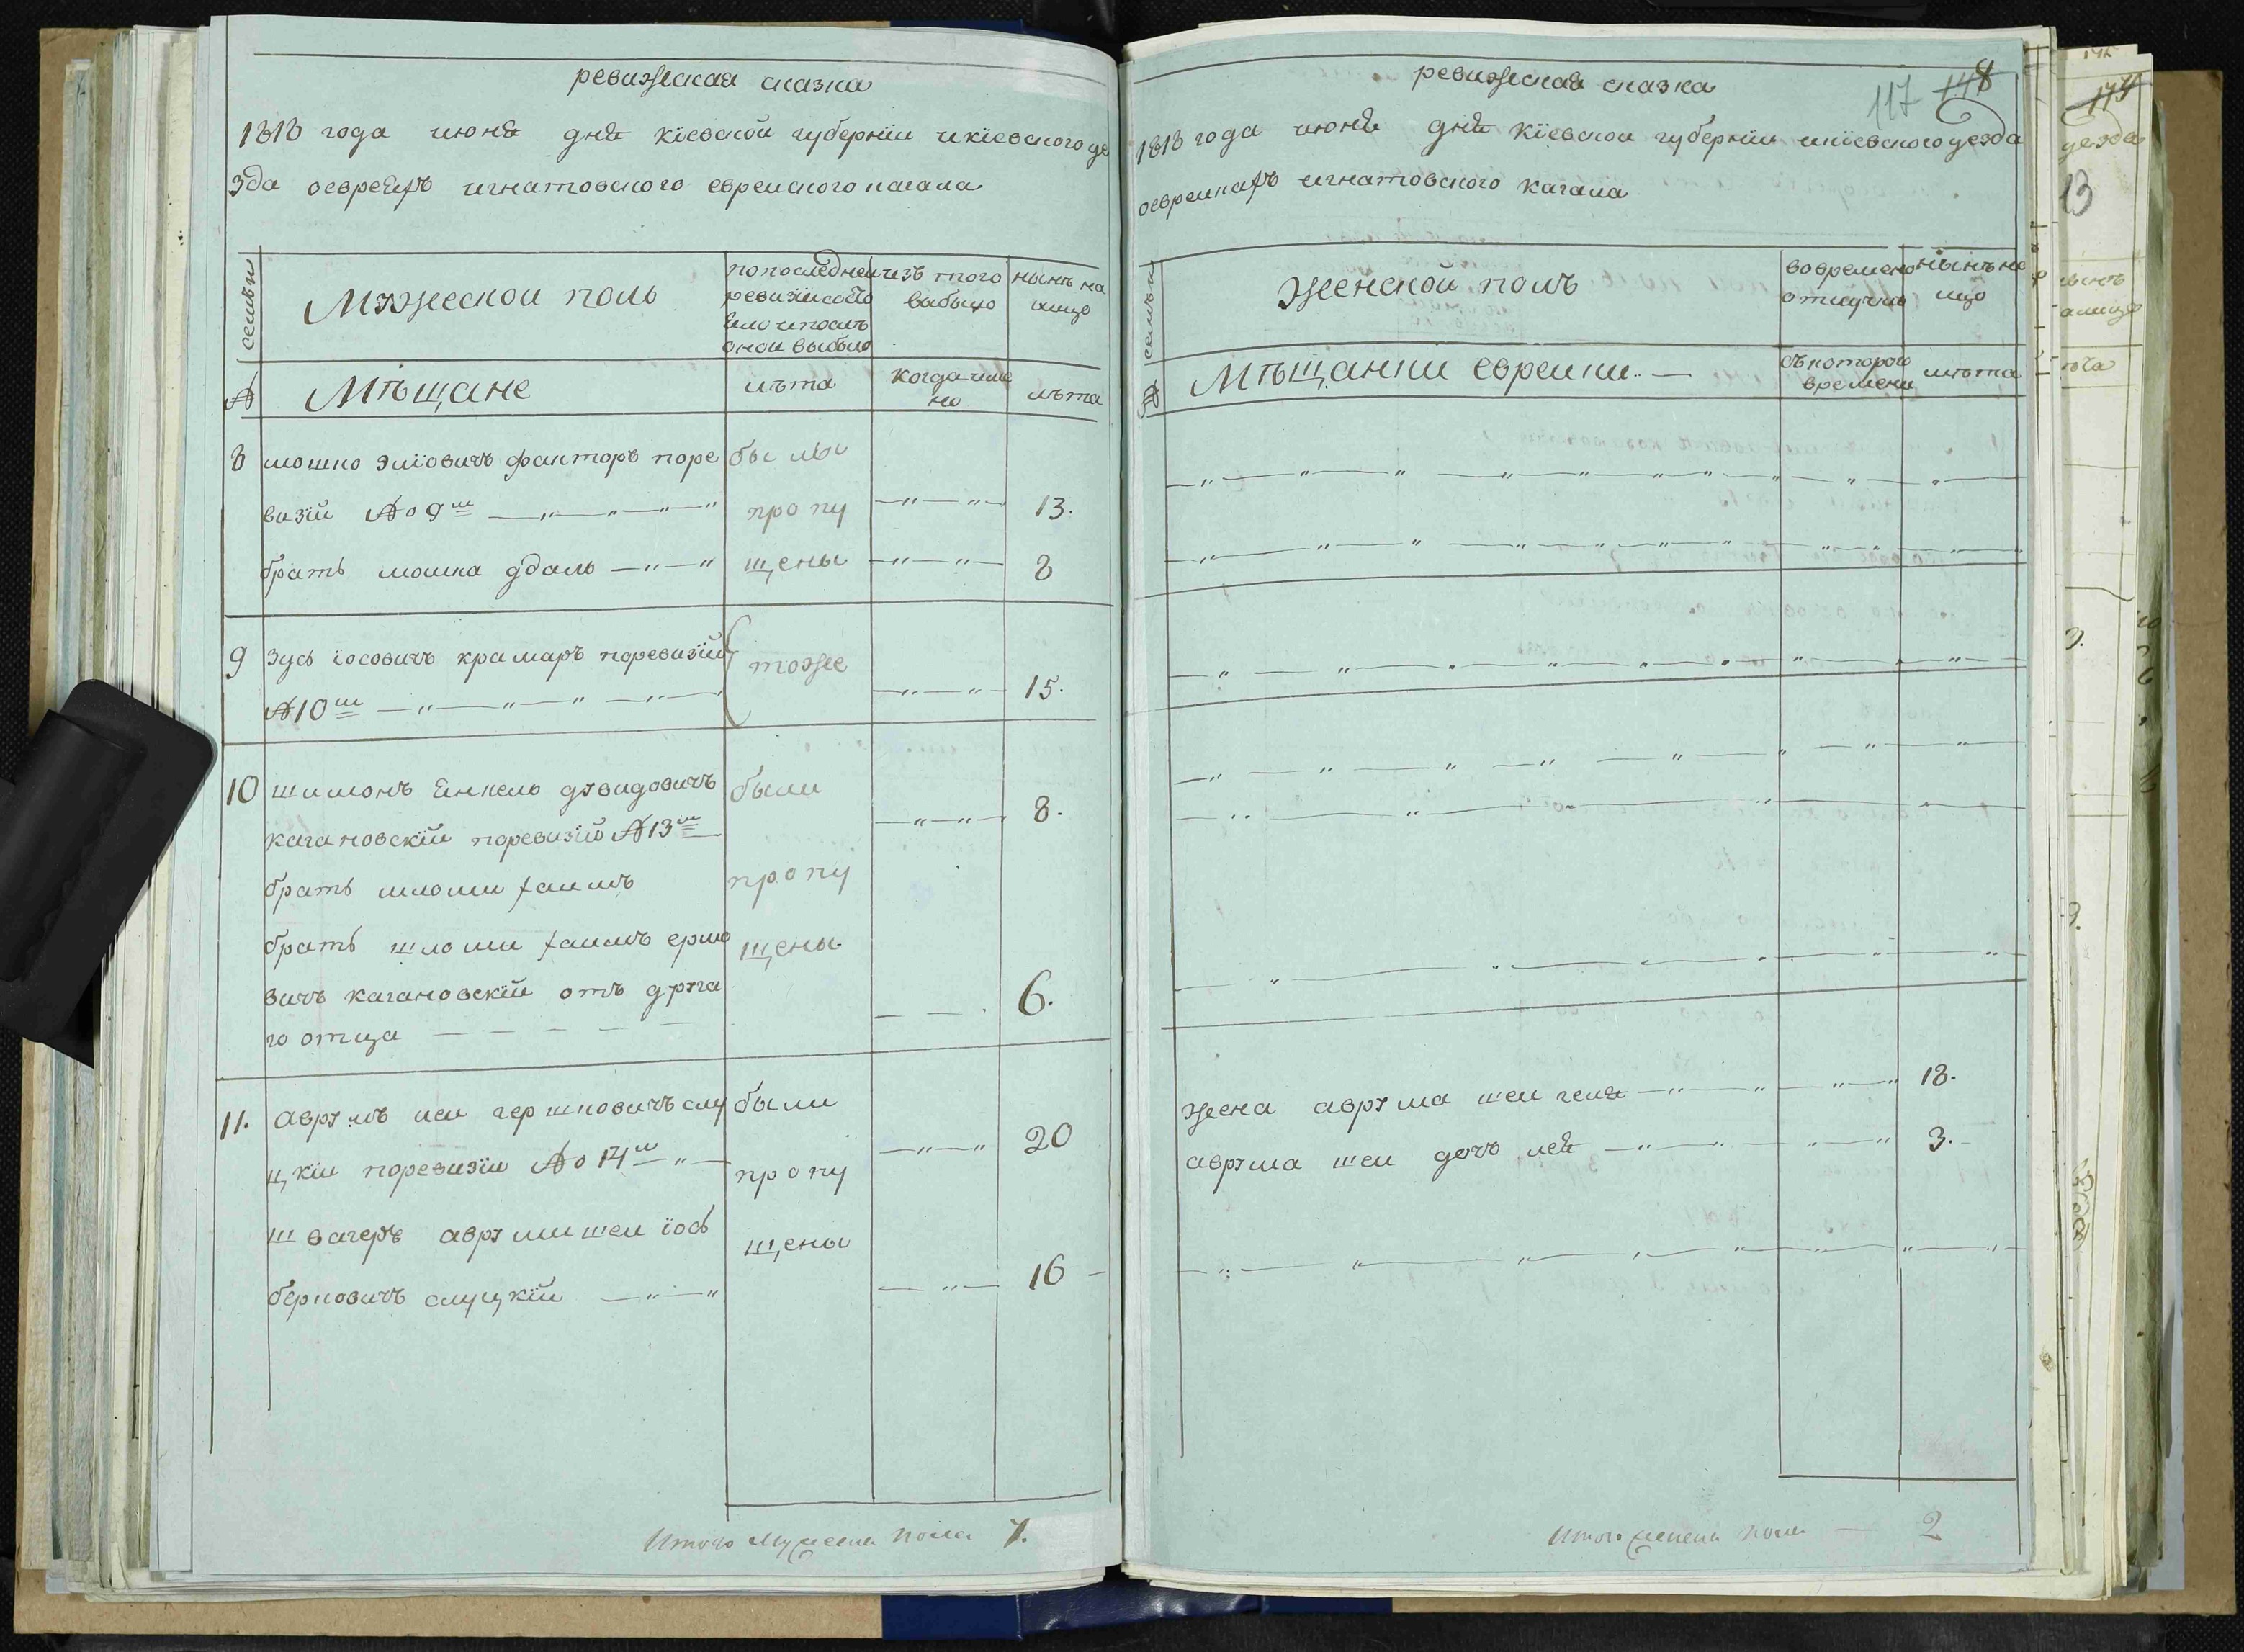 ревижская сказка
1818 года июня дня кіевской губернїи икіевского уе
зда оевреяхъ игнатовского евреиского кагала
семьи
Мꙋжескои полъ
попоследнеи
ревизїи состо
яло ипослъ
онои выбыло
изъ того
выбыло
нынъ на
лицо
№
Мѣщане
лѣта
когда име
но
лѣта
8 мошко элїовичъ факторъ поре
визїи №о 9ш
были
пропу
13.
братъ мошка удаль
щены
8
9 зусь їосовичъ крамаръ поревизїи
№10ш
тоже
15.
10 шимонъ янкель дꙋвидовичъ
кагановскїи поревизїи №13ш
были
8.
братъ шломи хаимъ
пропу
братъ шломи хаимъ ершо
вичъ кагановскїи отъ дрꙋга
го отца
щены
6.
11. аврꙋмъ иси гершковичъ слу
цкїи поревизїи №о 14ш
были
пропу
20
швагеръ аврꙋми шеи їось
берковичъ слуцкїи
щены
16
Итого Мужеска пола 7.
117 148
ревижская сказка
1818 года июня дня кїевскои губернїи икїевского уезда
оевреикахъ игнатовского кагала
семьи
женскои полъ
вовремено
отлучки
нынъ на
лицо
№
Мѣщанки евреики.
съкоторого
времени
лѣта
жена аврꙋма шеи геня 18.
аврꙋма шеи дочъ лея 3.
Итого женска пола 2
174
уезда
13